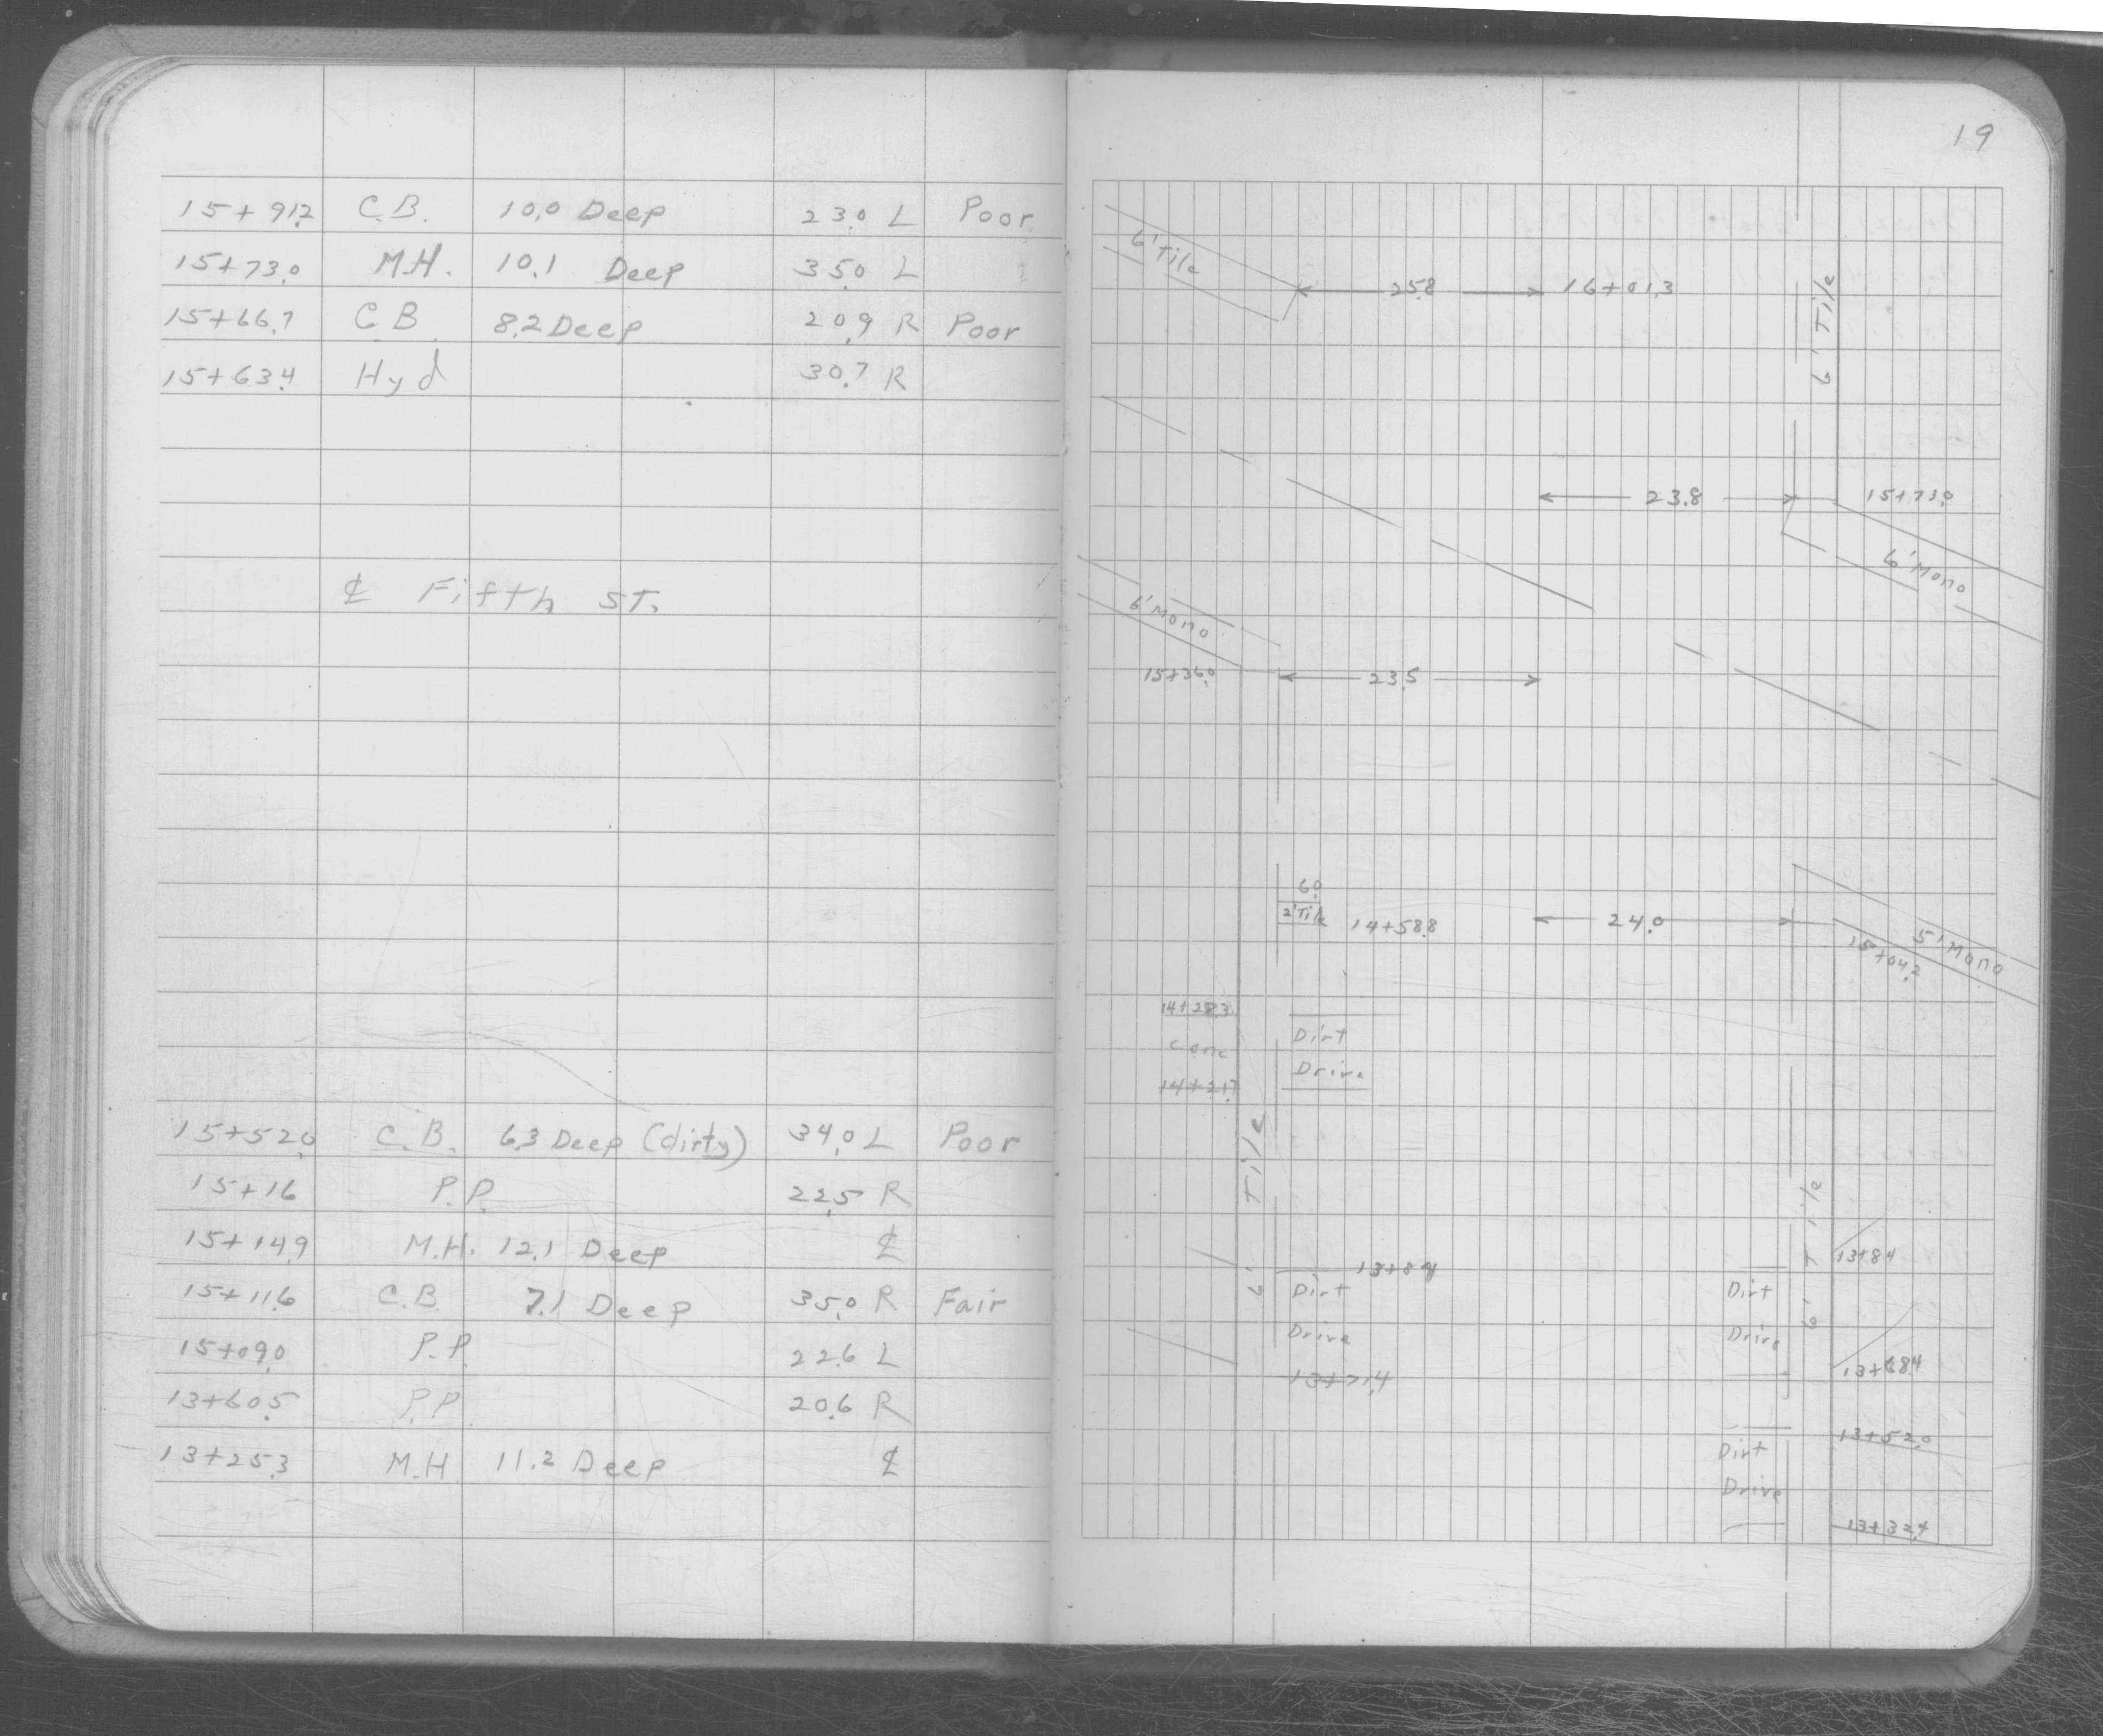 15+91.2 C.B. 10.0 Deep 23.0 L Poor
15+73.0 M.H. 10.1 Deep 35.0 L
15+66.7 C B 8.2 Deep 20.9 R Poor
15+63.4 Hyd 30.7 R
℄ Fifth ST.
15+52.0 C.B. 6.3 Deep (dirty) 34.0 L Poor
15+16 P.P. 22.5 R
15+14.9 M.H. 12.1 Deep ℄
15+11.6 C.B. 7.1 Deep 35.0 R Fair
15+09.0 P.P. 22.6 L
13+60.5 P.P. 20.6 R
13+25.3 M.H. 11.2 Deep ℄
19
6' Tile
25.8 16+01.3
6' Tile
23.8 15+73.0
6' Mono
6' Mono
15+36.0 23.5
6.0
2' Tile 14+58.8 24.0
5' Mono
15+04.2
14+28.3
Conc
14+21.7
Dirt
Drive
6' Tile
6' Tile
13+84
Dirt
Drive
13+71.4
13+84
Dirt
Drive
13+68.4
13+52.0
Dirt
Drive
13+32.4